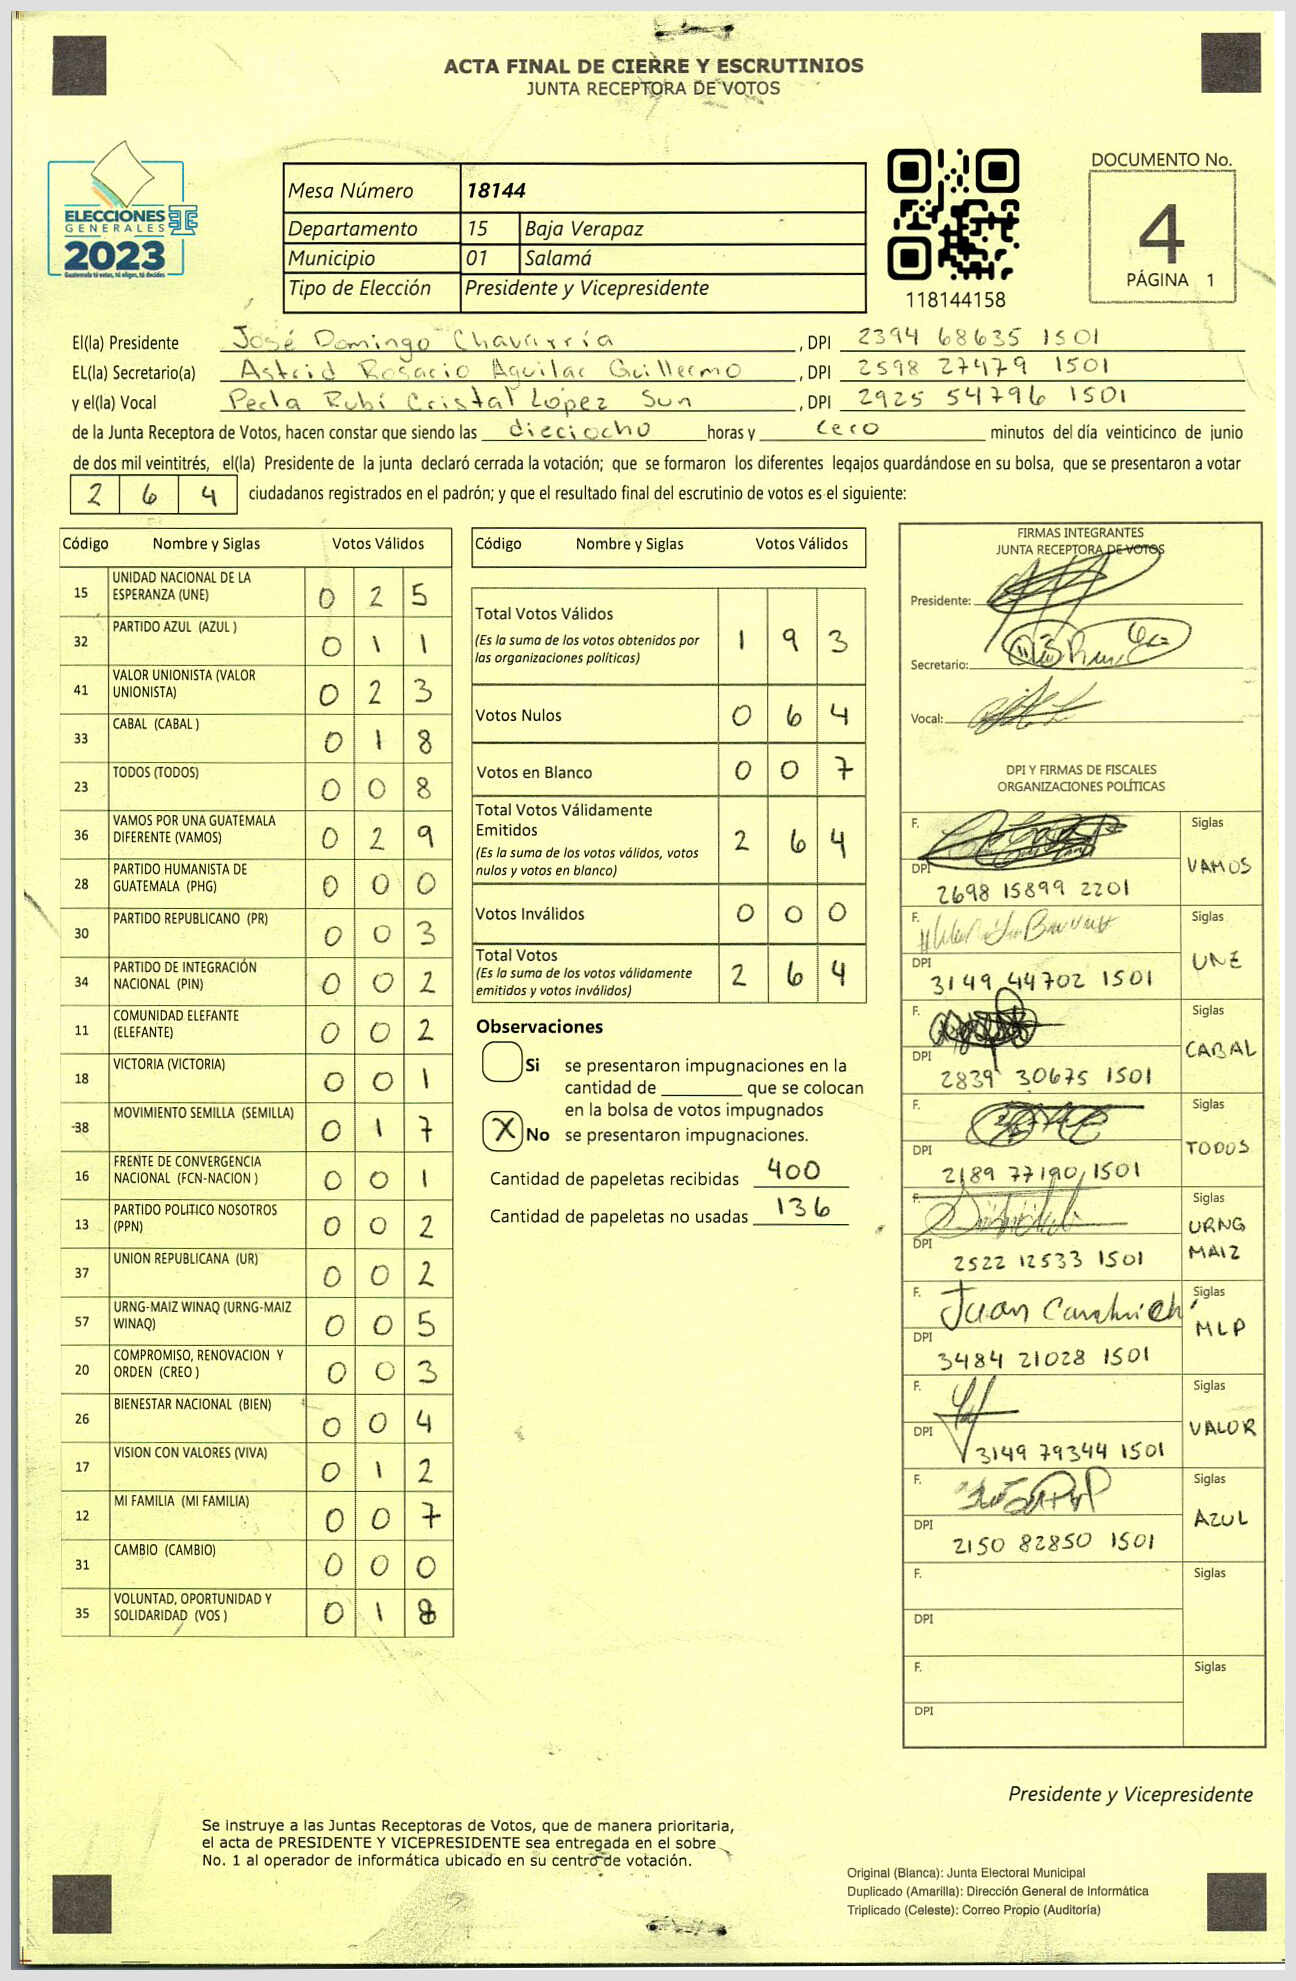 ACTA FINAL DE CIERRE Y ESCRUTINIOS
JUNTA RECEPTORA DE VOTOS
ELECCIONES
GENERALES
2023
Guatemala tú votas, tú eliges, tú decides
Mesa Número 18144
Departamento 15 Baja Verapaz
Municipio 01 Salamá
Tipo de Elección Presidente y Vicepresidente
118144158
DOCUMENTO No.
4
PÁGINA 1
El(la) Presidente José Domingo Chavarría , DPI 2394 68635 1501
EL(la) Secretario(a) Astrid Rosario Aguilar Guillermo , DPI 2598 27479 1501
y el(la) Vocal Perla Rubí Cristal López Sun , DPI 2925 54796 1501
de la Junta Receptora de Votos, hacen constar que siendo las dieciocho horas y cero minutos del día veinticinco de junio
de dos mil veintitrés, el(la) Presidente de la junta declaró cerrada la votación; que se formaron los diferentes legajos guardándose en su bolsa, que se presentaron a votar
2 6 4 ciudadanos registrados en el padrón; y que el resultado final del escrutinio de votos es el siguiente:
Código Nombre y Siglas Votos Válidos
15 UNIDAD NACIONAL DE LA ESPERANZA (UNE) 0 2 5
32 PARTIDO AZUL (AZUL ) 0 1 1
41 VALOR UNIONISTA (VALOR UNIONISTA) 0 2 3
33 CABAL (CABAL ) 0 1 8
23 TODOS (TODOS) 0 0 8
36 VAMOS POR UNA GUATEMALA DIFERENTE (VAMOS) 0 2 9
28 PARTIDO HUMANISTA DE GUATEMALA (PHG) 0 0 0
30 PARTIDO REPUBLICANO (PR) 0 0 3
34 PARTIDO DE INTEGRACIÓN NACIONAL (PIN) 0 0 2
11 COMUNIDAD ELEFANTE (ELEFANTE) 0 0 2
18 VICTORIA (VICTORIA) 0 0 1
38 MOVIMIENTO SEMILLA (SEMILLA) 0 1 7
16 FRENTE DE CONVERGENCIA NACIONAL (FCN-NACION ) 0 0 1
13 PARTIDO POLITICO NOSOTROS (PPN) 0 0 2
37 UNION REPUBLICANA (UR) 0 0 2
57 URNG-MAIZ WINAQ (URNG-MAIZ WINAQ) 0 0 5
20 COMPROMISO, RENOVACION Y ORDEN (CREO ) 0 0 3
26 BIENESTAR NACIONAL (BIEN) 0 0 4
17 VISION CON VALORES (VIVA) 0 1 2
12 MI FAMILIA (MI FAMILIA) 0 0 7
31 CAMBIO (CAMBIO) 0 0 0
35 VOLUNTAD, OPORTUNIDAD Y SOLIDARIDAD (VOS ) 0 1 8
Código Nombre y Siglas Votos Válidos
Total Votos Válidos 1 9 3
(Es la suma de los votos obtenidos por
las organizaciones políticas)
Votos Nulos 0 6 4
Votos en Blanco 0 0 7
Total Votos Válidamente
Emitidos 2 6 4
(Es la suma de los votos válidos, votos
nulos y votos en blanco)
Votos Inválidos 0 0 0
Total Votos 2 6 4
(Es la suma de los votos válidamente
emitidos y votos inválidos)
Observaciones
Si se presentaron impugnaciones en la
cantidad de ________ que se colocan
en la bolsa de votos impugnados
X No se presentaron impugnaciones.
Cantidad de papeletas recibidas 400
Cantidad de papeletas no usadas 136
FIRMAS INTEGRANTES
JUNTA RECEPTORA DE VOTOS
Presidente:
Secretario:
Vocal:
DPI Y FIRMAS DE FISCALES
ORGANIZACIONES POLÍTICAS
F. Siglas
VAMOS
DPI 2698 15899 2201
F. Siglas
UNE
DPI 3149 44702 1501
F. Siglas
CABAL
DPI 2839 30675 1501
F. Siglas
TODOS
DPI 2189 77190 1501
F. Siglas
URNG
MAIZ
DPI 2522 12533 1501
F. Juan Siglas
MLP
DPI 3484 21028 1501
F. Siglas
VALOR
DPI 3149 79344 1501
F. Siglas
AZUL
DPI 2150 82850 1501
F. Siglas
DPI
F. Siglas
DPI
Presidente y Vicepresidente
Se instruye a las Juntas Receptoras de Votos, que de manera prioritaria,
el acta de PRESIDENTE Y VICEPRESIDENTE sea entregada en el sobre
No. 1 al operador de informática ubicado en su centro de votación.
Original (Blanca): Junta Electoral Municipal
Duplicado (Amarilla): Dirección General de Informática
Triplicado (Celeste): Correo Propio (Auditoría)